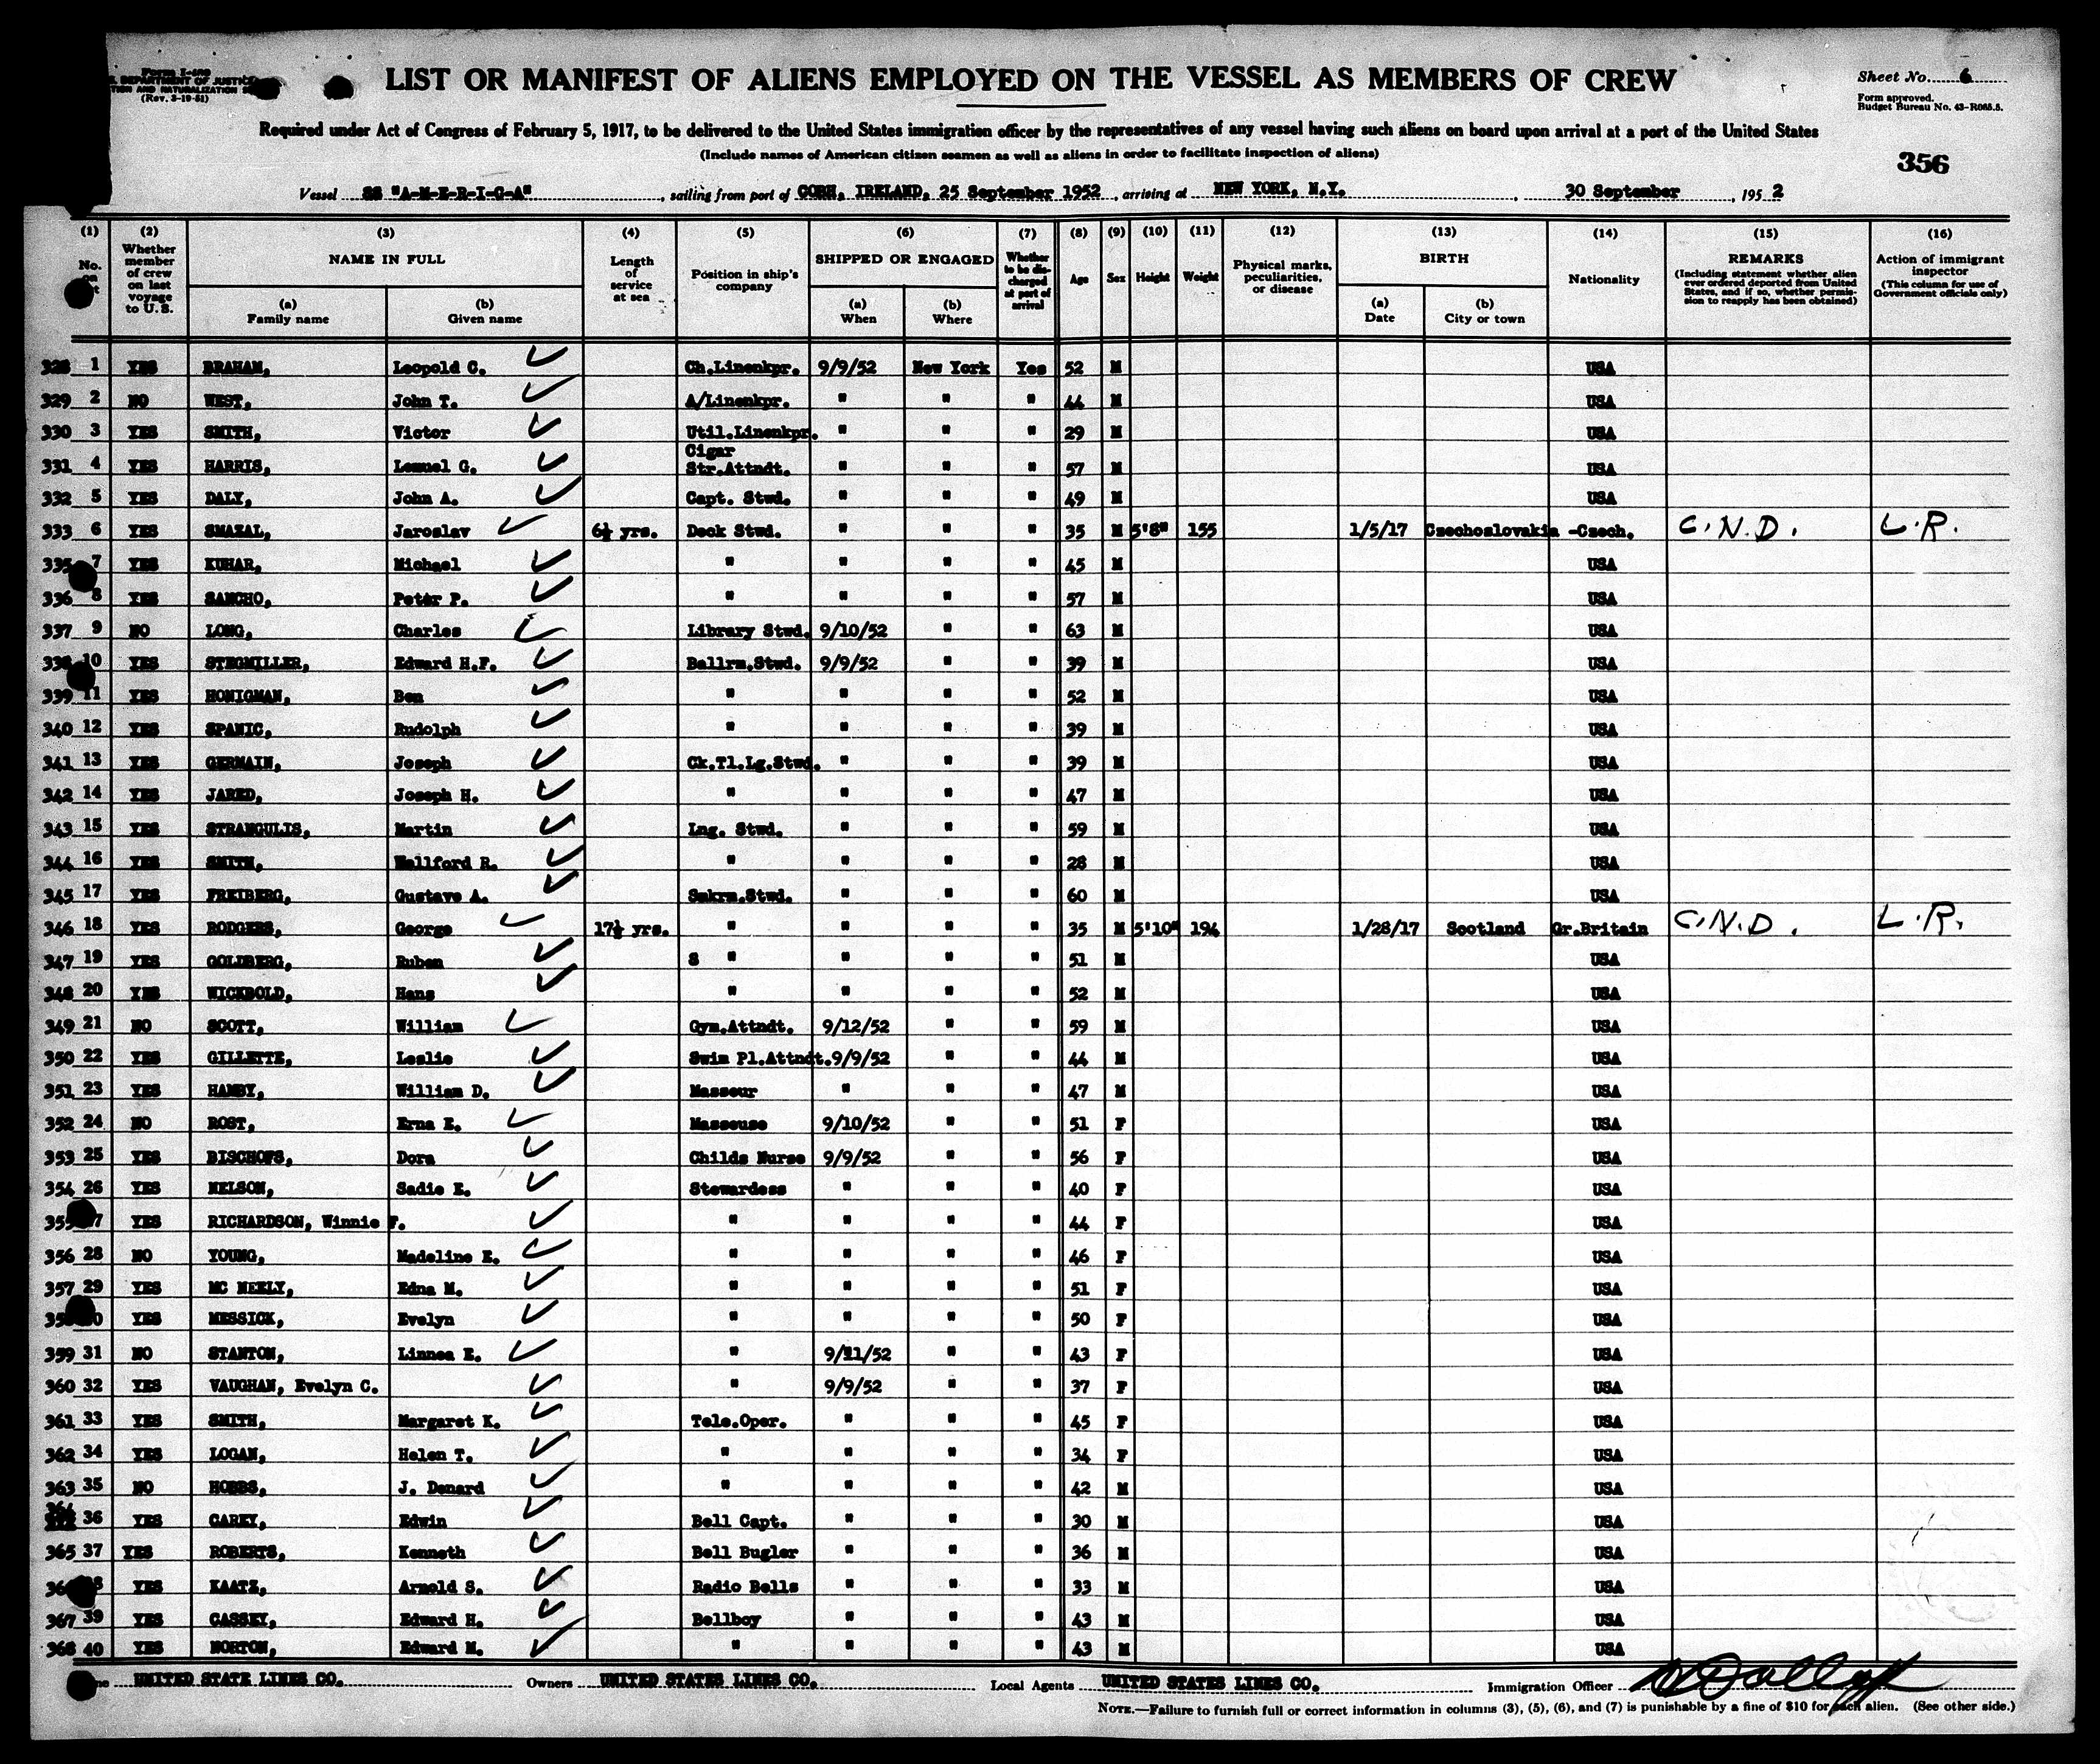 Form I-489
DEPARTMENT OF JUSTICE
TION AND NATURALIZATION
(Rev. 3-19-51)
LIST OR MANIFEST OF ALIENS EMPLOYED ON THE VESSEL AS MEMBERS OF CREW
Sheet No. 6
Form approved.
Budget Bureau No. 43-R065.5.
Required under Act of Congress of February 5, 1917, to be delivered to the United States immigration officer by the representatives of any vessel having such aliens on board upon arrival at a port of the United States
(Include names of American citizen seamen as well as aliens in order to facilitate inspection of aliens)
356
Vessel SS "A-M-E-R-I-C-A", sailing from port of COBH, IRELAND, 25 September 1952, arriving at NEW YORK, N.Y., 30 September, 1952
(1) (2) (3) (4) (5) (6) (7) (8) (9) (10) (11) (12) (13) (14) (15) (16)
No. on
Whether member of crew on last voyage to U.S.
NAME IN FULL
(a) Family name
(b) Given name
Length of service at sea
Position in ship's company
SHIPPED OR ENGAGED
(a) When
(b) Where
Whether to be discharged at port of arrival
Age
Sex
Height
Weight
Physical marks, peculiarities, or disease
BIRTH
(a) Date
(b) City or town
Nationality
REMARKS
(Including statement whether alien ever ordered deported from United States, and if so, whether permission to reapply has been obtained)
Action of immigrant inspector
(This column for use of Government officials only)
328 1 YES BRAHAM, Leopold C. Ch.Linenkpr. 9/9/52 New York Yes 52 M USA
329 2 NO WEST, John T. A/Linenkpr. " " " 44 M USA
330 3 YES SMITH, Victor Util.Linenkpr. " " " 29 M USA
331 4 YES HARRIS, Lemuel G. Cigar Str.Attndt. " " " 57 M USA
332 5 YES DALY, John A. Capt. Stwd. " " " 49 M USA
333 6 YES SMAZAL, Jaroslav 6½ yrs. Deck Stwd. " " " 35 M 5'8" 155 1/5/17 Czechoslovakia -Czech. C.N.D. L.R.
335 7 YES KUHAR, Michael " " " " 45 M USA
336 8 YES SANCHO, Peter P. " " " " 57 M USA
337 9 NO LONG, Charles Library Stwd. 9/10/52 " " 63 M USA
338 10 YES STEGMILLER, Edward H.F. Ballrm.Stwd. 9/9/52 " " 39 M USA
339 11 YES HONIGMAN, Ben " " " " 52 M USA
340 12 YES SPANIC, Rudolph " " " " 39 M USA
341 13 YES GERMAIN, Joseph Ck.Tl.Lg.Stwd. " " " 39 M USA
342 14 YES JARED, Joseph H. " " " " 47 M USA
343 15 YES STRANGULIS, Martin Lng. Stwd. " " " 59 M USA
344 16 YES SMITH, Wallford R. " " " " 28 M USA
345 17 YES FREIBERG, Gustave A. Smkrm.Stwd. " " " 60 M USA
346 18 YES RODGERS, George 17½ yrs. " " " " 35 M 5'10" 194 1/28/17 Scotland Gr.Britain C.N.D. L.R.
347 19 YES GOLDBERG, Ruben S " " " " 51 M USA
348 20 YES WICKBOLD, Hans " " " " 52 M USA
349 21 NO SCOTT, William Gym.Attndt. 9/12/52 " " 59 M USA
350 22 YES GILLETTE, Leslie Swim Pl.Attndt. 9/9/52 " " 44 M USA
351 23 YES HAMBY, William D. Masseur " " " 47 M USA
352 24 NO ROST, Erna E. Masseuse 9/10/52 " " 51 F USA
353 25 YES BISCHOFS, Dora Childs Nurse 9/9/52 " " 56 F USA
354 26 YES NELSON, Sadie E. Stewardess " " " 40 F USA
355 7 YES RICHARDSON, Winnie F. " " " " 44 F USA
356 28 NO YOUNG, Madeline E. " " " " 46 F USA
357 29 YES MC NEELY, Edna M. " " " " 51 F USA
35 0 YES MESSICK, Evelyn " " " " 50 F USA
359 31 NO STANTON, Linnea E. " 9/11/52 " " 43 F USA
360 32 YES VAUGHAN, Evelyn C. " 9/9/52 " " 37 F USA
361 33 YES SMITH, Margaret K. Tele.Oper. " " " 45 F USA
362 34 YES LOGAN, Helen T. " " " " 34 F USA
363 35 NO HOBBS, J. Denard " " " " 42 M USA
364 36 YES CAREY, Edwin Bell Capt. " " " 30 M USA
365 37 YES ROBERTS, Kenneth Bell Bugler " " " 36 M USA
36 8 YES KAATZ, Arnold S. Radio Bells " " " 33 M USA
367 39 YES CASSEY, Edward H. Bellboy " " " 43 M USA
368 40 YES NORTON, Edward M. " " " " 43 M USA
UNITED STATE LINES CO. Owners UNITED STATES LINES CO. Local Agents UNITED STATES LINES CO. Immigration Officer
NOTE.—Failure to furnish full or correct information in columns (3), (5), (6), and (7) is punishable by a fine of $10 for each alien. (See other side.)